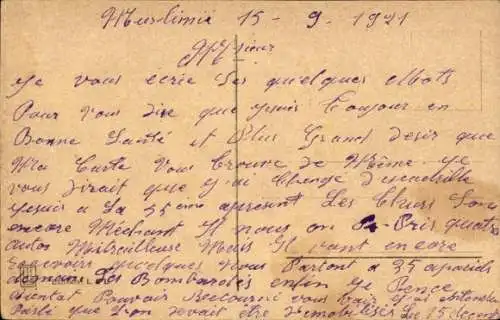 Muslimié 15 - 9 - 1921
Msieur
Je vous écrie ses quelques Mots
Pour Vous dire que Jesuis Toujour en
Bonne Santé et Plus Grand desir que
Ma Carte Vous Trouve de Même. Je
vous dirait que J'ai Change d'escadrille
Jesuis a La 35 eme apresent Les Turcs Sons
encore Méchant Il nous on Pris quatre
autos Mitrailleuse Mais Il vont encore
quelque nous Partont a 25 apareils
Les Bombardés enfin Je Pence
Bientat Pouvoir Retourné vous voir J'ai entendu
Parlé que L'on devait etre Demobilisés Le 15